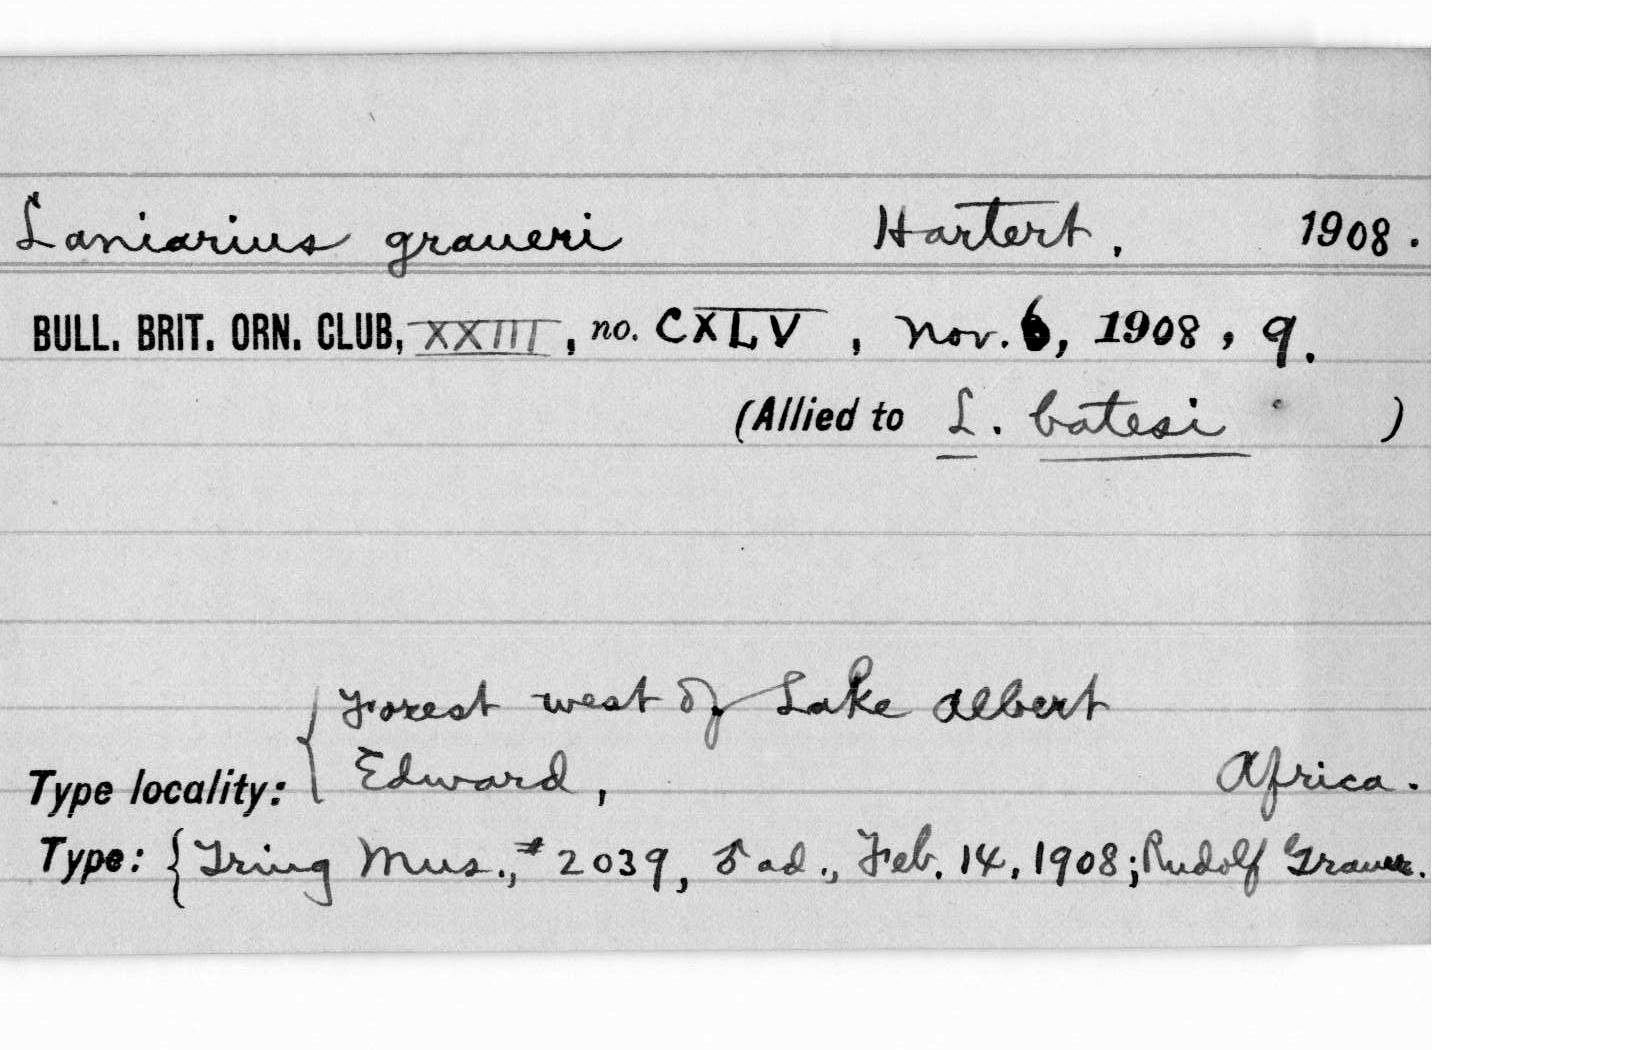 Laniarius graueri Hartert, 1908.
BULL. BRIT. ORN. CLUB, XXIII, no. CXLV, Nov. 6, 1908, 9.
(Allied to L. batesi )
Forest west of Lake Albert
Type locality: { Edward, Africa.
Type: { Tring Mus., # 2039, ♂ ad., Feb. 14, 1908; Rudolf Grauer.